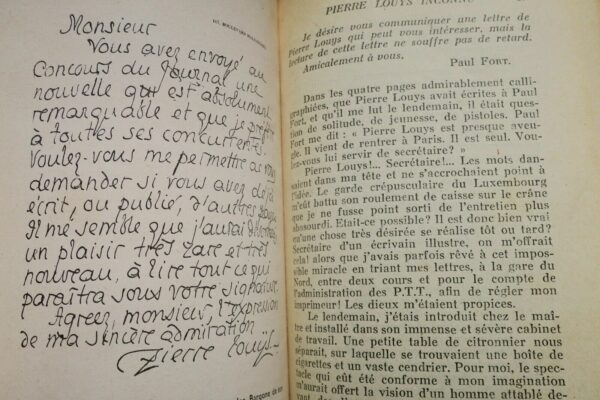 Monsieur
Vous avez envoyé au
Concours du Journal une
nouvelle qui est absolument
remarquable et que je préfère
à toutes ses concurrentes.
Voulez-vous me permettre de vous
demander si vous avez déjà
écrit, ou publié, d'autres
Il me semble que j'aurai
un plaisir très rare et très
nouveau, à lire tout ce qui
paraîtra sous votre signature.
Agréez, monsieur, l'expression
de ma sincère admiration
Pierre Louÿs
PIERRE LOUYS INCONNU
Je désire vous communiquer une lettre de
Pierre Louys qui peut vous intéresser, mais la
lecture de cette lettre ne souffre pas de retard.
Amicalement à vous.
Paul Fort.
Dans les quatre pages admirablement calli-
graphiées, que Pierre Louys avait écrites à Paul
Fort, et qu'il me lut le lendemain, il était ques-
tion de solitude, de jeunesse, de pistoles. Paul
Fort me dit : « Pierre Louys est presque aveu-
gle. Il vient de rentrer à Paris. Il est seul. Voulez-
vous lui servir de secrétaire? »
Pierre Louys!... Secrétaire!... Les mots dan-
saient dans ma tête et ne s'accrochaient point à
l'idée. Le garde crépusculaire du Luxembourg
m'eût battu son roulement de caisse sur le crâne
que je ne fusse point sorti de l'entretien plus
abasourdi. Etait-ce possible? Il est donc bien vrai
qu'une chose très désirée se réalise tôt ou tard?
Secrétaire d'un écrivain illustre, on m'offrait
cela! alors que j'avais parfois rêvé à cet impos-
sible miracle en triant mes lettres, à la gare du
Nord, entre deux cours et pour le compte de
l'administration des P.T.T., afin de régler mon
imprimeur! Les dieux m'étaient propices.
Le lendemain, j'étais introduit chez le maî-
tre et installé dans son immense et sévère cabinet
de travail. Une petite table de citronnier nous
séparait, sur laquelle se trouvaient une boîte de
cigarettes et un vaste cendrier. Pour moi, le spec-
tacle qui eût été conforme à mon imagination
m'aurait offert la vision d'un homme attablé de-